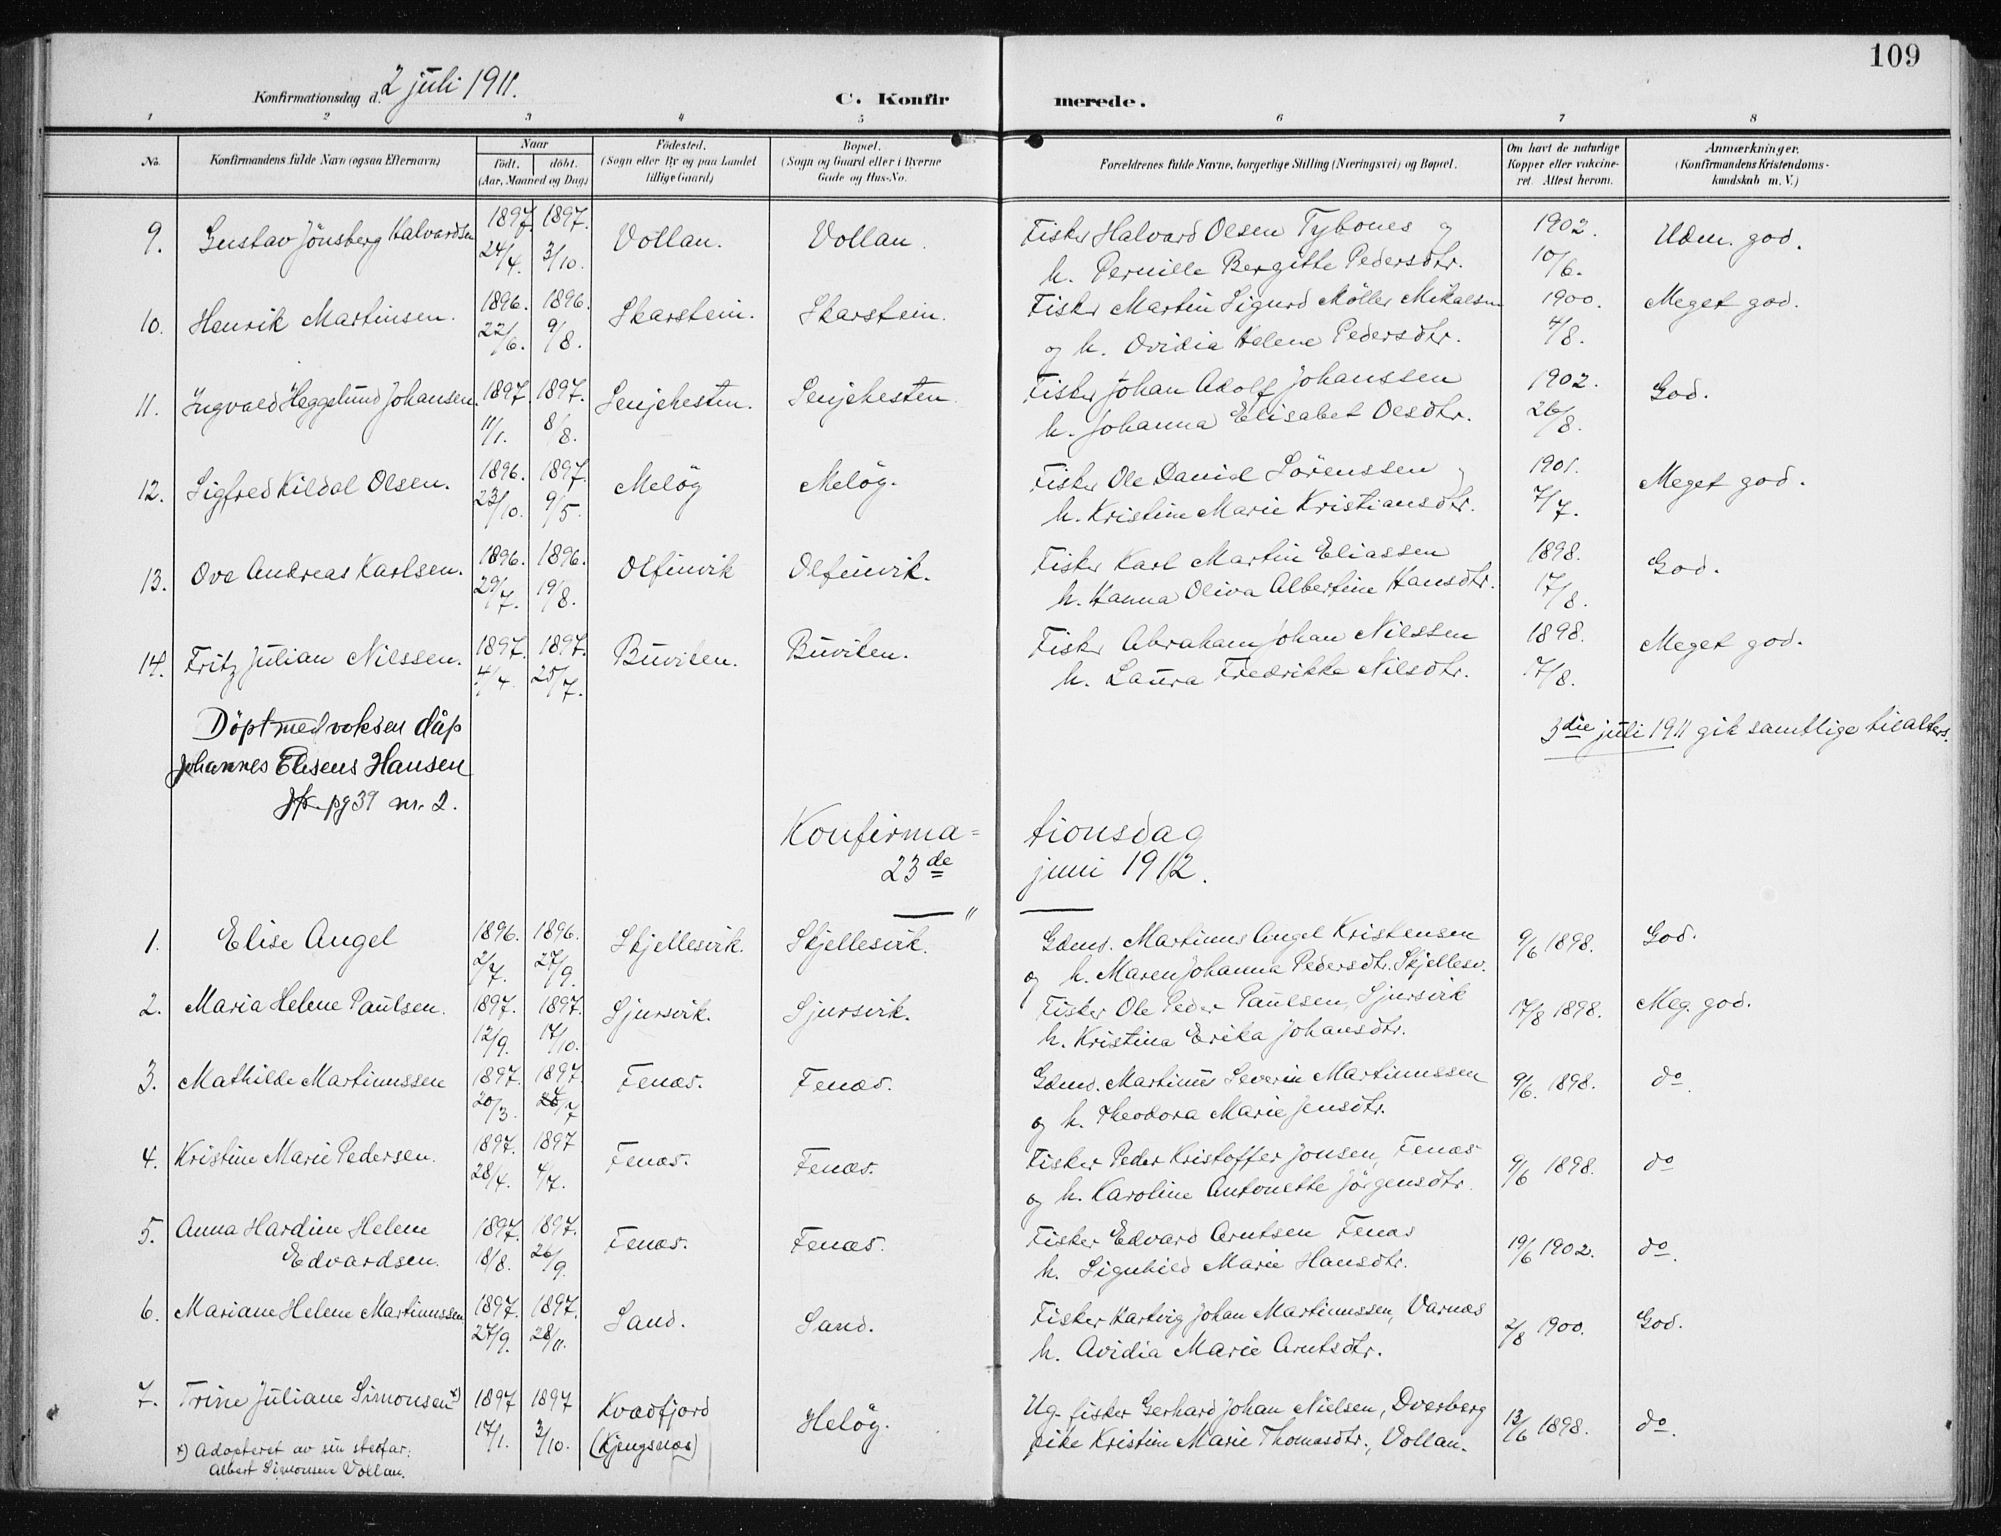 109
Konfirmationsdag d. 2 juli 1911.
C. Konfir merede.
1 2 3 4 5 6 7 8
No.
Konfirmandens fulde Navn (ogsaa Efternavn)
Naar
født. døbt.
(Aar, Maaned og Dag)
Fødested.
(Sogn eller By og paa Landet
tillige Gaard)
Bopæl.
(Sogn og Gaard eller i Byerne
Gade og Hus-No.
Forældrenes fulde Navne, borgerlige Stilling (Næringsvei) og Bopæl.
Om havt de naturlige
Kopper eller vakcine-
ret. Attest herom.
Anmærkninger.
(Konfirmandens Kristendoms-
kundskab m. V.)
9. Gustav Jönsberg Halvardsen 1897. 24/4. 1897. 3/10. Vollan. Vollan. Fisker Halvard Olsen Tybones og 1902. 10/6. Udm. god.
h. Pernille Bergitte Pedersdtr.
10. Henrik Martinsen. 1896. 22/6. 1896. 9/8. Skarstein. Skarstein. Fisker Martin Sigurd Möller Mikalsen 1900. 4/8. Meget god.
og h. Ovidia Helene Pedersdtr.
11. Ingvald Heggelund Johansen. 1897. 11/1. 1897. 8/8. Senjehesten. Senjehesten. Fisker Johan Adolf Johanssen 1902. 26/8. God.
h. Johanna Elisabet Olsdtr.
12. Sigfred Kildal Olsen. 1896. 23/10. 1897. 9/5. Melöy Melöy. Fisker Ole Daniel Sörenssen 1901. 7/7. Meget god.
h. Kristine Marie Kristiansdtr.
13. Ove Andreas Karlsen. 1896. 29/7. 1896. 19/8. Olfinvik Olfinvik. Fisker Karl Martin Eliassen 1898. 17/8. God.
h. Hanna Oliva Albertine Hansdtr.
14. Fritz Julian Nilssen. 1897. 4/4. 1897. 25/7. Buviken. Buviken. Fisker Abraham Johan Nilssen 1898. 17/8. Meget god.
h. Laura Fredrikke Nilsdtr.
Döpt med voksen dåp
Johannes Elisens Hansen
pg 39 nr. 2.
3die juli 1911 gik samtlige tilalters.
Konfirma= tionsdag
23de juni 1912.
1. Elise Angel 1896. 2/7. 1896. 27/9. Skjellesvik. Skjellesvik. Gdmd. Martinus Angel Kristensen 9/6 1898. God.
og h. Maren Johanna Pedersdtr. Skjellesv.
2. Maria Helene Paulsen. 1897. 12/9. 1897. 17/10. Sjursvik. Sjursvik. Fisker Ole Peder Paulsen, Sjursvik 17/8 1898. Meg. god.
h. Kristina Erika Johansdtr.
3. Mathilde Martinussen 1897. 20/3. 1897. 25/7 Fenæs. Fenæs. Gdmd. Martinus Severin Martinussen 9/6. 1898. do.
og h. Theodora Marie Jensdtr.
4. Kristine Marie Pedersen. 1897. 28/4. 1897 4/7. Fenæs. Fenæs. Fisker Peder Kristoffer Jonsen, Fenæs 9/6 1898. do
og h. Karoline Antonette Jörgensdtr.
5. Anna Hardine Helene 1897. 8/8. 1897. 26/9. Fenæs. Fenæs. Fisker Edvard Arntsen Fenæs 19/6 1902. do.
Edvardsen. h. Signhild Marie Hansdtr.
6. Mariane Helene Martinussen 1897. 27/9. 1897. 28/11. Sand. Sand. Fisker Hartvig Johan Martinussen, Varnæs 2/8 1900. God.
h. Avidia Marie Arntsdtr.
7. Trine Juliane Simonsen x) 1897 17/1. 1897 3/10. Kvædfjord Helöy. Ug. fisker Gerhard Johan Nielsen, Dverberg 13/6 1898. do.
(Kjengsnæs) pike Kristine Marie Thomasdtr., Vollan.
x) Adopteret av sin stefar:
Albert Simonsen Vollan.